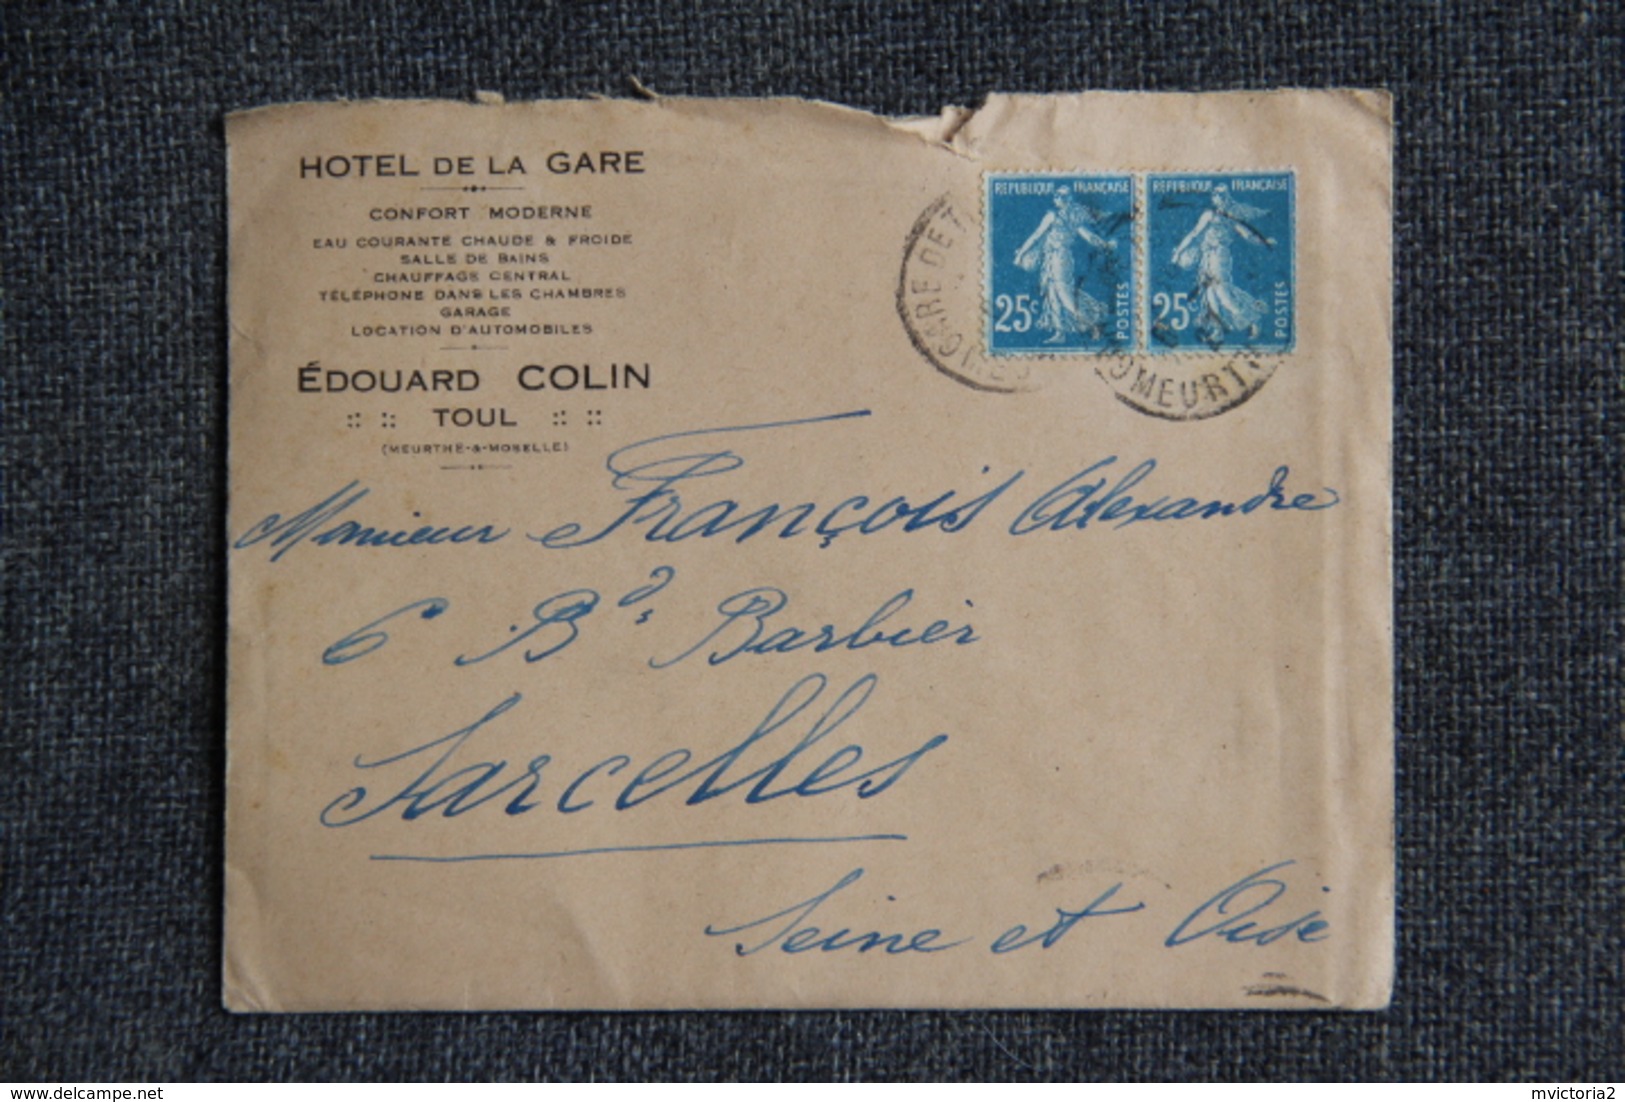 HOTEL DE LA GARE
CONFORT MODERNE
EAU COURANTE CHAUDE & FROIDE
SALLE DE BAINS
CHAUFFAGE CENTRAL
TÉLÉPHONE DANS LES CHAMBRES
GARAGE
LOCATION D'AUTOMOBILES
ÉDOUARD COLIN
TOUL
(MEURTHE-&-MOSELLE)
REPUBLIQUE FRANÇAISE
25c POSTES
REPUBLIQUE FRANÇAISE
25c POSTES
GARE DE T
MEURT
Monsieur François Alexandre
6 Bd Barbier
Sarcelles
Seine et Oise
delcampe.net
mvictoria2